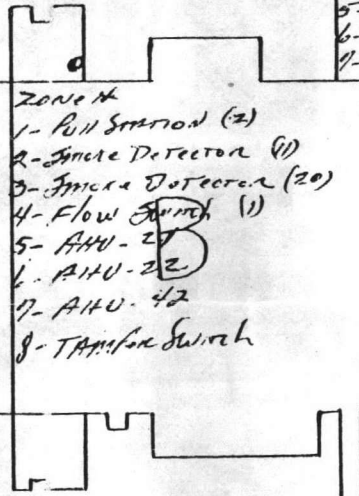 5-
6-
7-
ZONE #
1- Pull Station (2)
2- Smoke Detector (11)
3- Smoke Detector (20)
4- Flow Switch (1)
5- AHU - 27
B
6- AHU - 22
7- AHU - 42
8- Tamper Switch